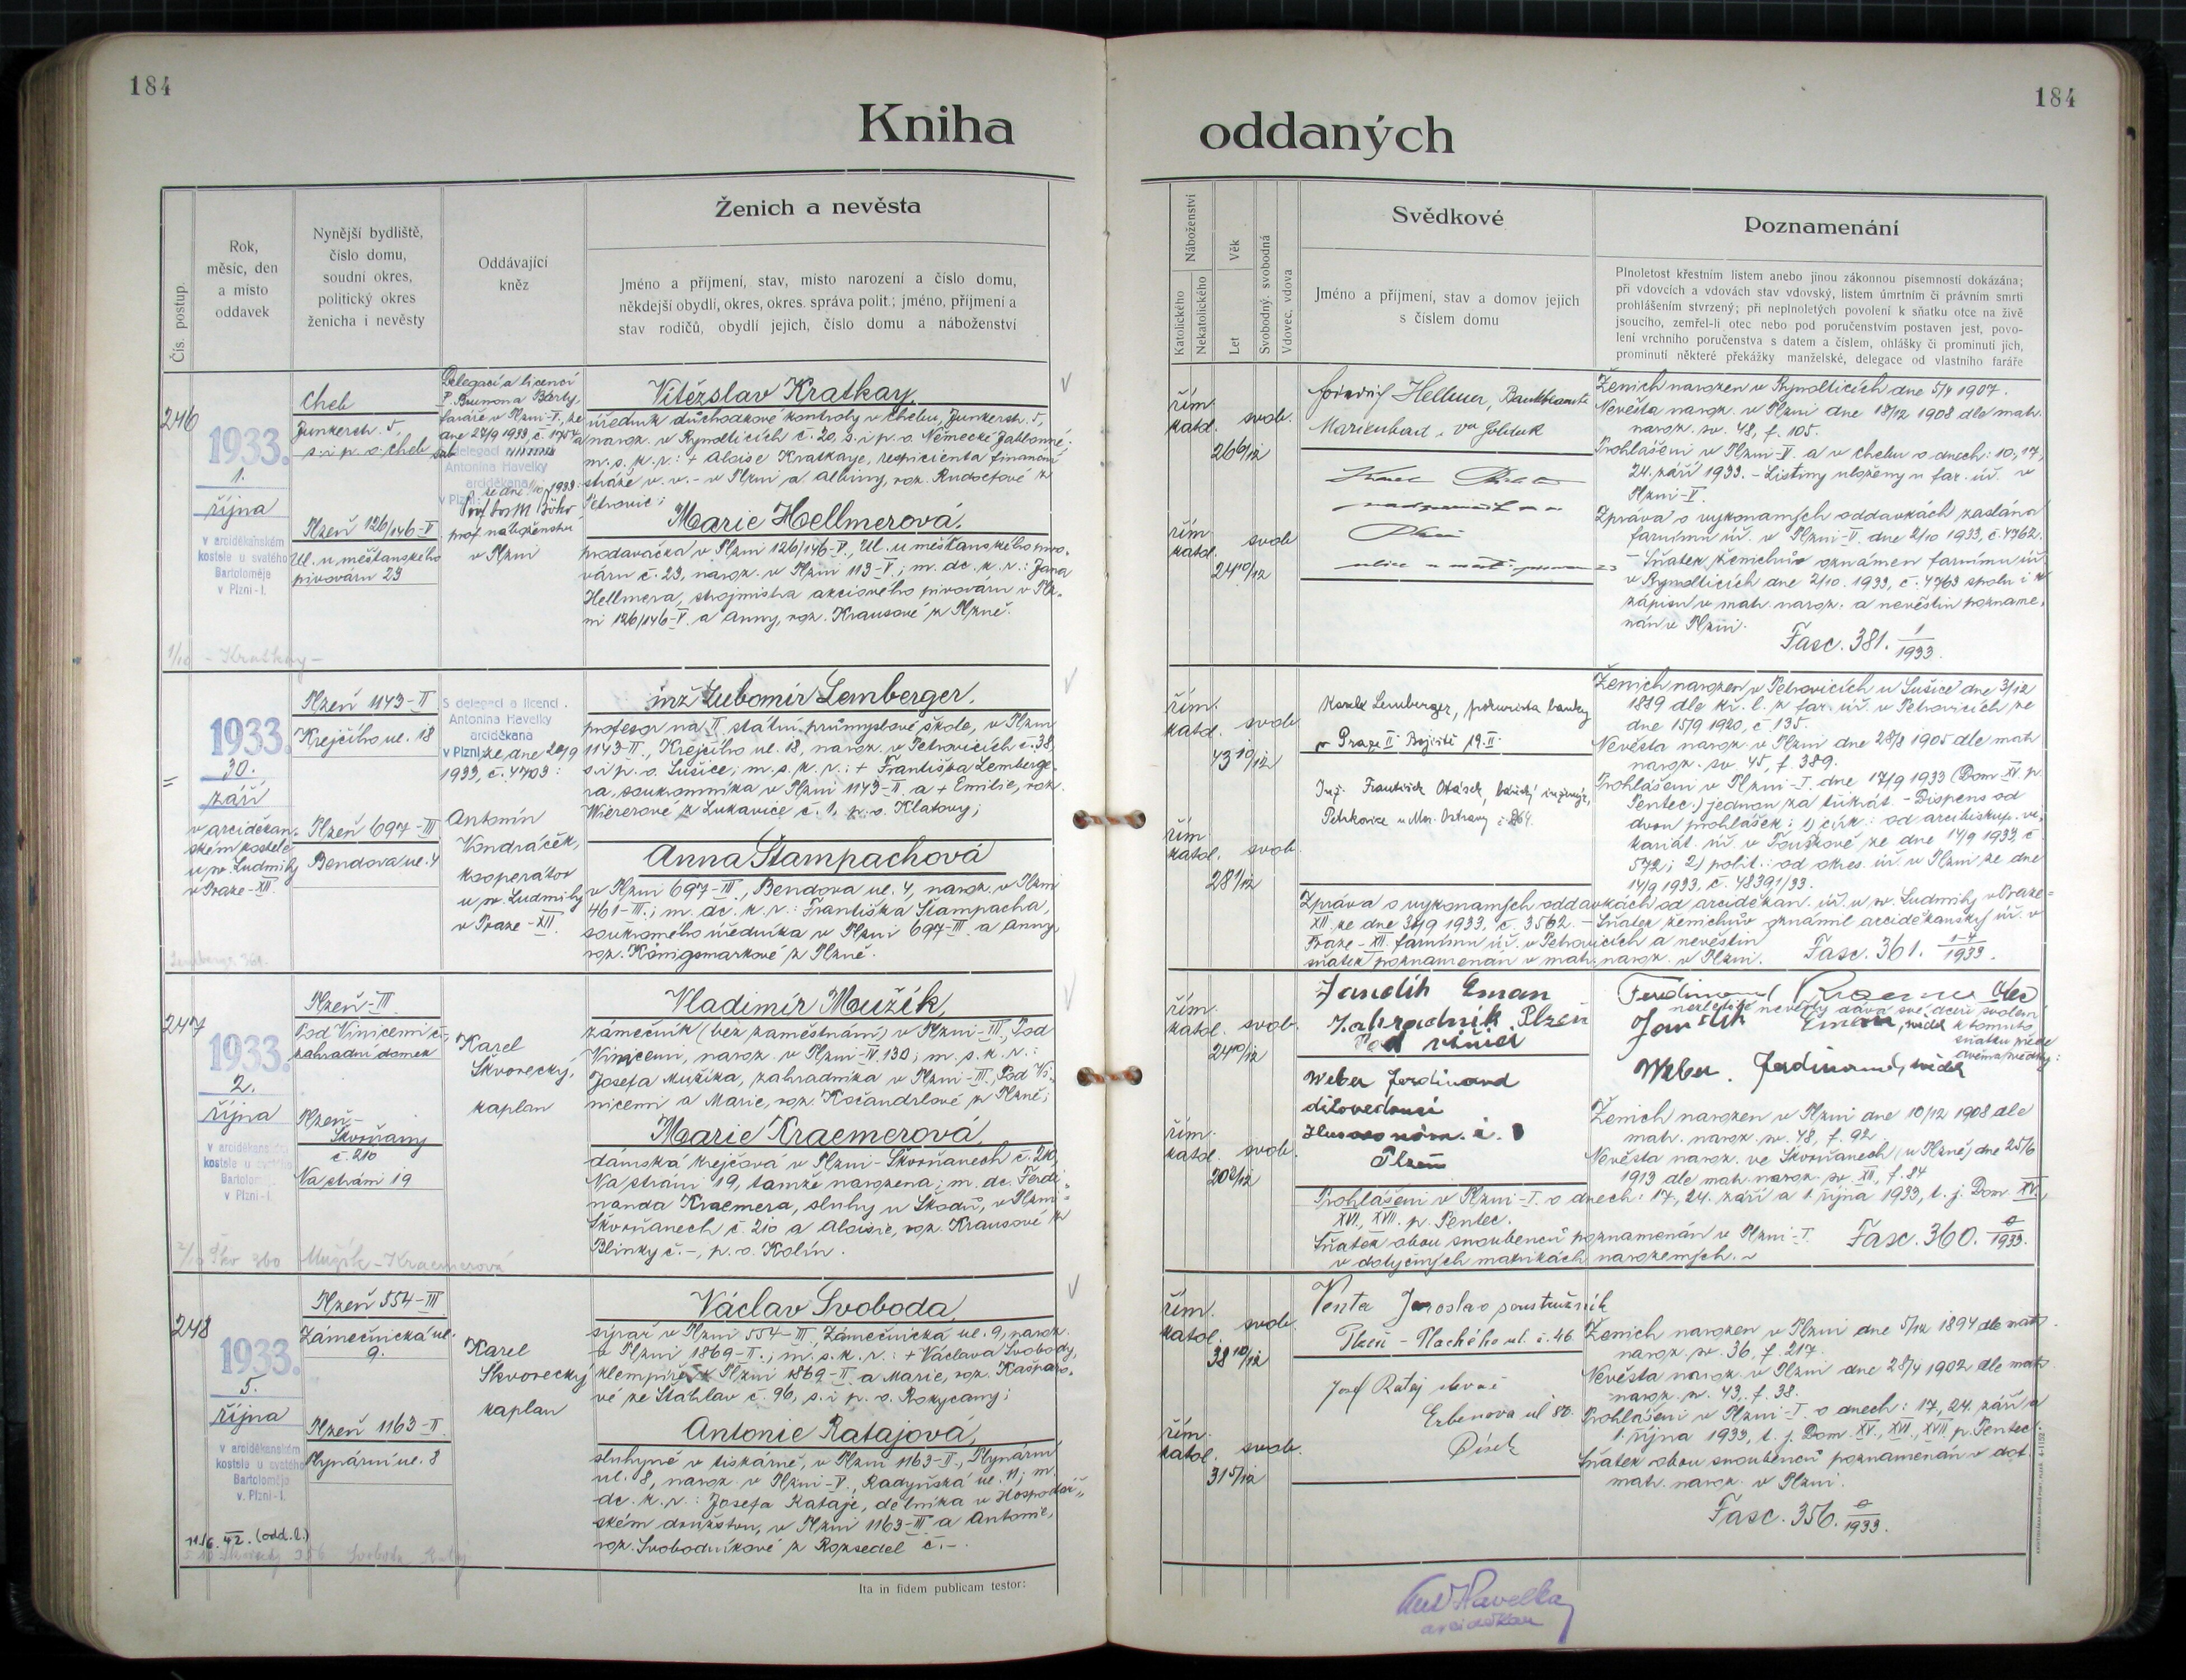 184
184
Kniha
oddaných
Čís. postup.
Rok,
měsíc, den
a místo
oddavek
Nynější bydliště,
číslo domu,
soudní okres,
politický okres
ženicha i nevěsty
Oddávající
kněz
Ženich a nevěsta
Jméno a příjmení, stav, místo narození a číslo domu,
někdejší obydlí, okres, okres. správa polit.; jméno, příjmení a
stav rodičů, obydlí jejich, číslo domu a náboženství
Náboženství
Katolického
Nekatolického
Věk
Let
Svobodný, svobodná
Vdovec, vdova
Svědkové
Jméno a příjmení, stav a domov jejich
s číslem domu
Poznamenání
Plnoletost křestním listem anebo jinou zákonnou písemností dokázána;
při vdovcích a vdovách stav vdovský, listem úmrtním či právním smrti
prohlášením stvrzený; při neplnoletých povolení k sňatku otce na živě
jsoucího, zemřel-li otec nebo pod poručenstvím postaven jest, povo-
lení vrchního poručenstva s datem a číslem, ohlášky či prominutí jich,
prominutí některé překážky manželské, delegace od vlastního faráře
246
1933.
1.
října
v arciděkanském
kostele u svatého
Bartoloměje
v Plzni-I.
Cheb
Junkerstr. 5,
s. i p. o. Cheb
Plzeň 126/146-V
Ul. u měšťanského
pivovaru 23
Delegací a licencí
P. Brunona Bárty,
faráře v Plzni-V., ze
dne 27/9 1933, č.
delegací
Antonína Havelky
arciděkana
v Plzni ze dne 1933:
prof. náboženství
v Plzni
Vítězslav Kratkay,
úředník důchodkové kontroly v Chebu, Junkerstr. 5,
naroz. v Rynolticích č. 20, s. i p. o. Německé Jablonné;
m. s. k. r.: + Aloise Kratkaye, respicienta finanční
stráže v. v. - v Plzni a Albiny, roz. Rudolfové z
Petrovic;
Marie Hellmerová,
prodavačka v Plzni 126/146-V., Ul. u měšťanského pivo-
varu č. 23, naroz. v Plzni 113-V; m. dc. k. r.: Jana
Hellmera, strojmistra akciového pivovaru v Plz-
ni 126/146-V. a Anny, roz. Krausové z Plzně.
1/10 - Kratkay -
řím.
katol. svob.
26 6/12
řím.
katol. svob.
24 10/12
Hellmer, Bankbeamte
Marienbad
Ženich narozen v Rynolticích dne 5/4 1907.
Nevěsta naroz. v Plzni dne 18/12 1908 dle matr.
naroz. sv. 48, f. 105.
Prohlášeni v Plzni-V. a v Chebu o dnech: 10., 17.,
24. září 1933. - Listiny uloženy u far. úř. v
Plzni-V.
Zpráva o vykonaných oddavkách zaslána
farnímu úř. v Plzni-V. dne 2/10 1933, č. 4762.
- Sňatek ženichův oznámen farnímu úř.
v Rynolticích dne 2/10. 1933, č. 4763 spolu i k
zápisu v matr. naroz. a nevěstin pozname-
nán v Plzni.
Fasc. 381. 1/1933.
1933.
30.
září
v arciděkan-
ském kostele
u sv. Ludmily
v Praze-XII.
Plzeň 1143-II
Krejčího ul. 18
Plzeň 697-III
Bendova ul. 4
S delegací a licencí
Antonína Havelky
arciděkana
v Plzni, ze dne 20/9
1933, č. 4703:
Antonín
Vondráček,
kooperátor
u sv. Ludmily
v Praze-XII.
inž Lubomír Lemberger,
profesor na II. státní průmyslové škole, v Plzni
1143-II., Krejčího ul. 18, naroz. v Petrovicích č. 38,
s. i p. o. Sušice; m. s. k. r.: + Františka Lemberge-
ra, soukromníka v Plzni 1143-II. a + Emilie, roz.
Wiererové z Lukavice č. 1, p. o. Klatovy;
Anna Štampachová
v Plzni 697-III, Bendova ul. 4, naroz. v Plzni
461-III.; m. dc. k. r.: Františka Štampacha,
soukromého úředníka v Plzni 697-III. a Anny,
roz. Königsmarkové z Plzně.
řím.
katol. svob.
43 10/12
řím.
katol. svob.
28 1/12
Karel Lemberger, prokurista banky
v Praze II. Bojiště 19. II.
Inž. František Otásek, báňský inženýr,
Petřkovice u Mor. Ostravy č. 264.
Ženich narozen v Petrovicích u Sušice dne 3/12
1889 dle kř. l. z far. úř. v Petrovicích ze
dne 15/9 1920, č. 135.
Nevěsta naroz. v Plzni dne 28/8 1905 dle matr.
naroz. sv. 45, f. 389.
Prohlášeni v Plzni-I. dne 17/9 1933 (Dom. XV. p.
Pentec.) jednou za třikrát. - Dispens od
dvou prohlášek: 1) círk.: od arcibiskup. vi-
kariát. úř. v Touškově ze dne 14/9 1933, č.
572; 2) polit.: od okres. úř. v Plzni ze dne
14/9 1933, č. 48391/33.
Zpráva o vykonaných oddavkách od arciděkan. úř. u sv. Ludmily v Praze-
XII. ze dne 30/9 1933, č. 3562. - Sňatek ženichův oznámil arciděkanský úř. v
Praze-XII. farnímu úř. v Petrovicích a nevěstin
sňatek poznamenán v matr. naroz. v Plzni. Fasc. 361. 1-4/1933.
247
1933.
2.
října
v arciděkanském
kostele u svatého
Bartoloměje
v Plzni-I.
Plzeň-III
Pod Vinicemi č.-,
zahradní domek
Plzeň-
Skvrňany
č. 210
Na stráni 19
Karel
Škvorecký,
kaplan
Vladimír Mužík,
zámečník (bez zaměstnání) v Plzni-III., Pod
Vinicemi, naroz. v Plzni-IV. 130; m. s. k. r.:
Josefa Mužíka, zahradníka v Plzni-III., Pod Vi-
nicemi a Marie, roz. Kočandrlové z Plzně;
Marie Kraemerová,
dámská krejčová v Plzni-Skvrňanech č. 210,
Na stráni 19, tamže narozena; m. dc. Ferdi-
nanda Kraemera, sluhy u Škodů, v Plzni-
Skvrňanech č. 210 a Aloisie, roz. Krausové z
Blinky č.-, p. o. Kolín.
2/10 Škv 360 Mužík-Kraemerová
řím.
katol. svob.
24 10/12
řím.
katol. svob.
20 3/12
Jandík Eman
Zahradník Plzeň
Weber Ferdinand
dílovedoucí
Husovo nám. č.
Plzeň
Ferdinand Kraemer otec
nezletilé nevěsty dává své dceři svolení
k tomuto
sňatku přede
dvěma svědky:
Jandík Eman, svědek
Weber Ferdinand, svědek
Ženich narozen v Plzni dne 10/12 1908 dle
matr. naroz. sv. 48, f. 92
Nevěsta naroz. ve Skvrňanech (u Plzně) dne 25/6
1913 dle matr. naroz. sv. XII, f. 84
Prohlášeni v Plzni-I. o dnech: 17., 24. září a 1. října 1933, t. j. Dom. XV.,
XVI., XVII. p. Pentec.
Sňatek obou snoubenců poznamenán v Plzni-I. Fasc. 360. 0/1933.
v dotyčných matrikách narozených.
248
1933.
5.
října
v arciděkanském
kostele u svatého
Bartoloměje
v. Plzni-I.
Plzeň 554-III
Zámečnická ul.
9.
Plzeň 1163-II.
Plynární ul. 8
Karel
Škvorecký
kaplan
Václav Svoboda,
sýrař v Plzni 554-III, Zámečnická ul. 9, naroz.
v Plzni 1869-II.; m. s. k. r.: + Václava Svobody,
klempíře z Plzni 1869-II. a Marie, roz. Kašparo-
vé ze Šťáhlav č. 96, s. i p. o. Rokycany;
Antonie Ratajová,
sluhyně v tiskárně, v Plzni 1163-II., Plynární
ul. 8, naroz. v Plzni-V., Radyňská ul. 11; m.
dc. k. r.: Josefa Rataje, dělníka v Hospodář-
ském družstvu, v Plzni 1163-III a Antonie,
roz. Svobodníkové z Rozsedel č.-.
(odd. l.)
řím.
katol. svob.
38 10/12
řím.
katol. svob.
31 5/12
Venta Jaroslav soustružník
Plzeň - Plachého ul. č. 46.
Josef Rataj
Erbenova ul 80.
Písek
Ženich narozen v Plzni dne 5/12 1894 dle matr.
naroz. sv. 36, f. 217.
Nevěsta naroz. v Plzni dne 28/4 1902 dle matr.
naroz. sv. 43, f. 38.
Prohlášeni v Plzni-I. o dnech: 17., 24. září a
1. října 1933, t. j. Dom. XV., XVI., XVII. p. Pentec.
Sňatek obou snoubenců poznamenán v dot.
matr. naroz. v Plzni.
Fasc. 356. 0/1933.
Ita in fidem publicam testor:
Ant. Havelka
arciděkan